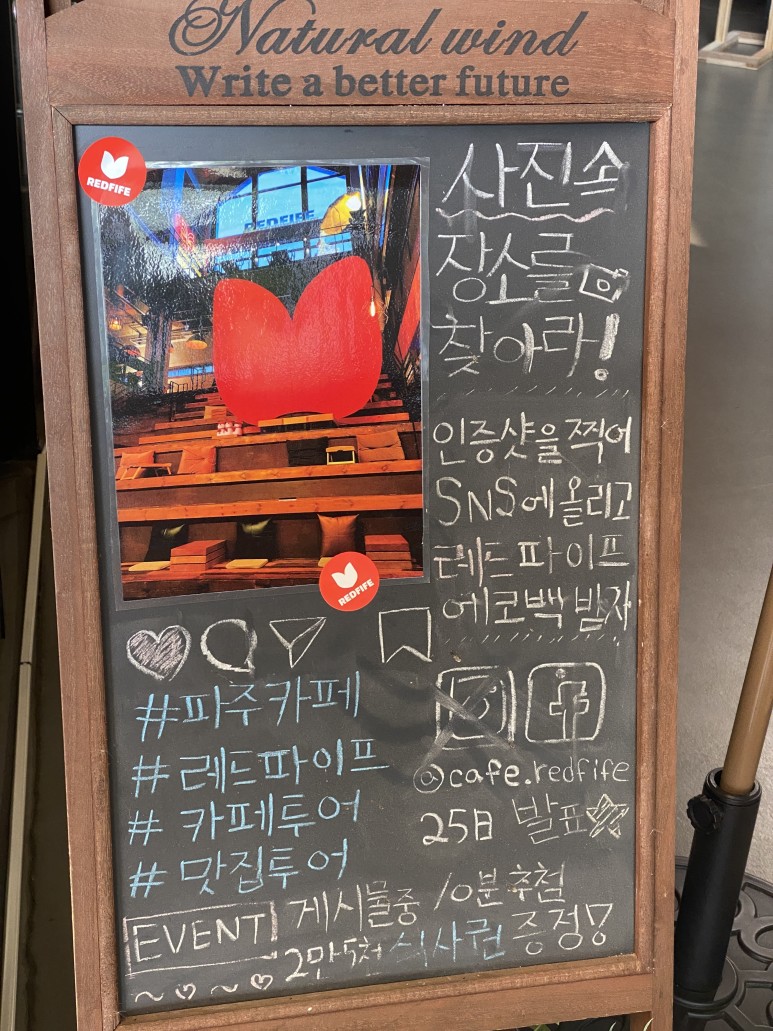 Natural wind
Write a better future
REDFIFE
REDFIFE
사진속
장소를
찾아라!
인증샷을 찍어
SNS에 올리고
레드파이프
에코백 받자
REDFIFE
#파주카페
#레드파이프
#카페투어
#맛집투어
@cafe.redfife
25日 발표
EVENT
게시물중 10분 추첨
2만5천 식사권 증정!